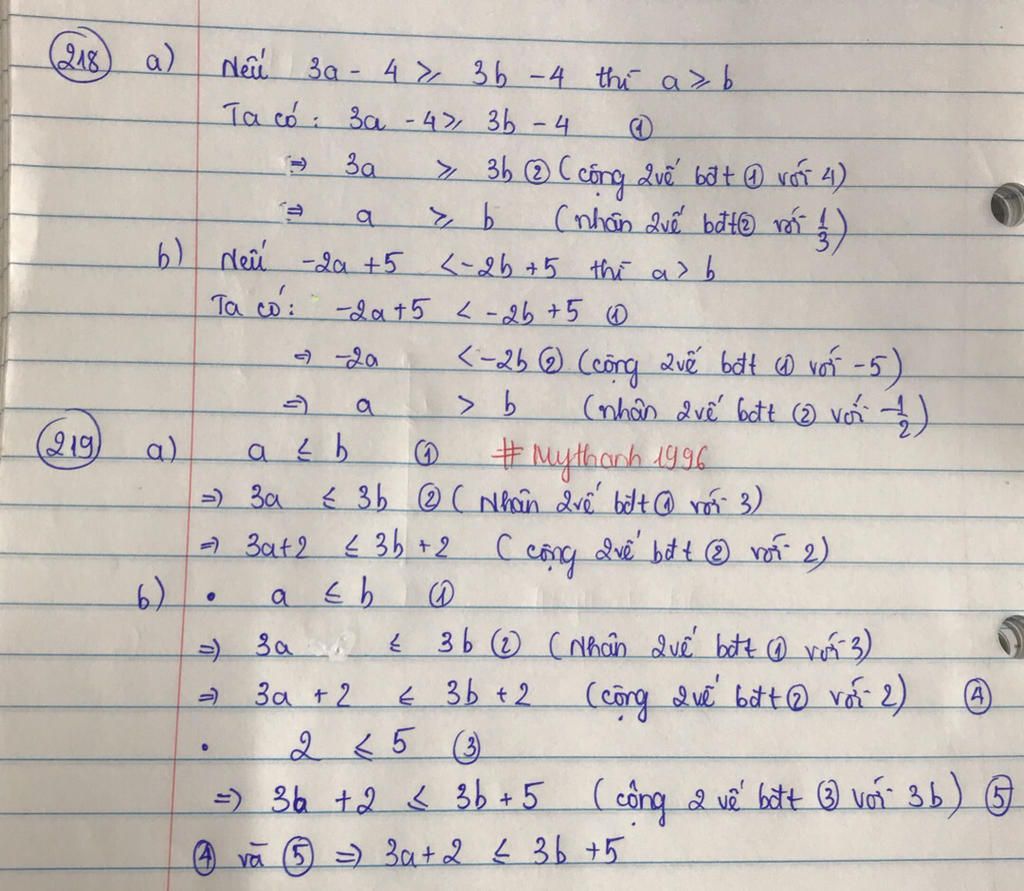 218 a) Nếu 3a - 4 ⩾ 3b - 4 thì a ⩾ b
Ta có: 3a - 4 ⩾ 3b - 4 ①
⇒ 3a ⩾ 3b ② (cộng 2 vế bđt ① với 4)
⇒ a ⩾ b (nhân 2 vế bđt ② với 1/3)
b) Nếu -2a + 5 < -2b + 5 thì a > b
Ta có: -2a + 5 < -2b + 5 ①
⇒ -2a < -2b ② (cộng 2 vế bđt ① với -5)
⇒ a > b (nhân 2 vế bđt ② với -1/2)
219 a) a ≤ b ① # Mythanh 1996
⇒ 3a ≤ 3b ② (Nhân 2 vế bđt ① với 3)
⇒ 3a+2 ≤ 3b+2 (cộng 2 vế bđt ② với 2)
b) • a ≤ b ①
⇒ 3a ≤ 3b ② (Nhân 2 vế bđt ① với 3)
⇒ 3a + 2 ≤ 3b + 2 (cộng 2 vế bđt ② với 2) ④
• 2 ≤ 5 ③
⇒ 3b + 2 ≤ 3b + 5 (cộng 2 vế bđt ③ với 3b) ⑤
④ và ⑤ ⇒ 3a+2 ≤ 3b +5